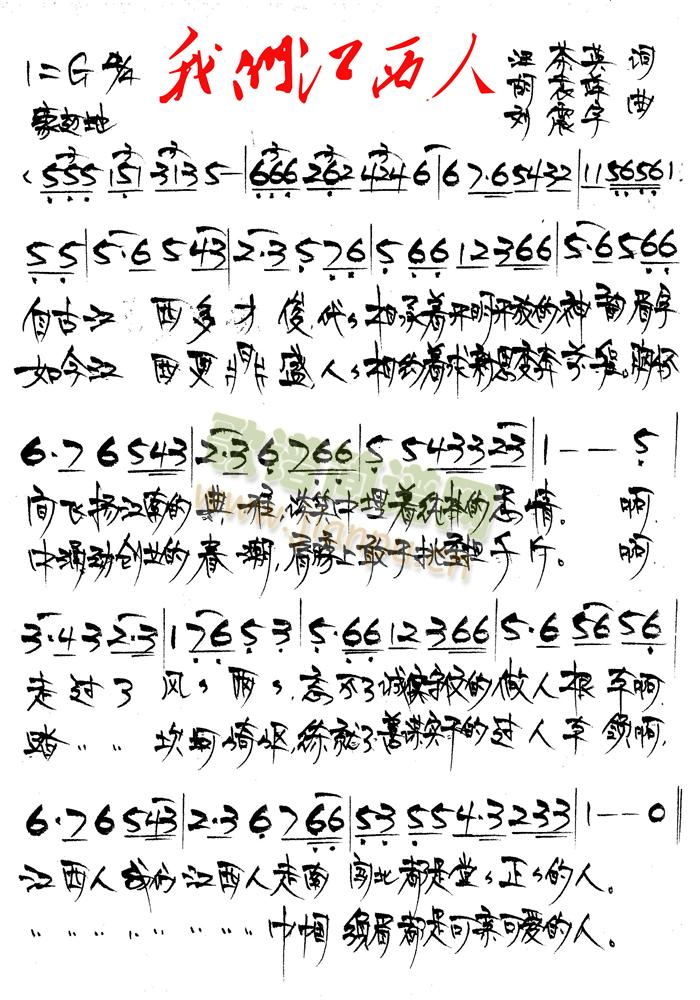 我們江西人
1=G 4/4
词
曲
刘震宇
5 5 5 1 5 1 3 1 3 5 - | 6 6 6 2 6 2 4 2 4 6 | 6 7·6 5 4 3 2 | 1 1 5 6 5 6 1
5 5 | 5·6 5 4 3 | 2·3 5 7 6 | 5 6 6 1 2 3 6 6 | 5·6 5 6 6
自古江 西多才俊,代々相承着开明开放的神韵眉宇
如今江 西更 盛,人々 着求新思变奔前程。胸怀
6·7 6 5 4 3 | 2·3 6 7 6 6 | 5 5 4 3 3 2 3 | 1 - - 5
间飞扬江南的典雅谈笑中埋着纯朴的柔情。 啊
中涌动创业的春潮,肩膀上敢于挑重担千斤。 啊
3·4 3 2·3 | 1 7 6 5 3 | 5·6 6 1 2 3 6 6 | 5·6 5 6 5 6
走过了风々雨々,忘不了诚信守信的做人根本啊
踏〃〃坎坷崎岖,练就了善谋实干的过人本领啊,
6·7 6 5 4 3 | 2·3 6 7 6 6 | 5 3 5 5 4·3 2 3 3 | 1 - - 0
江西人我们江西人走南闯北都是堂々正々的人。
〃〃〃〃〃〃〃〃巾帼须眉都是可亲可爱的人。
歌谱简谱网
www.jianpu.cn